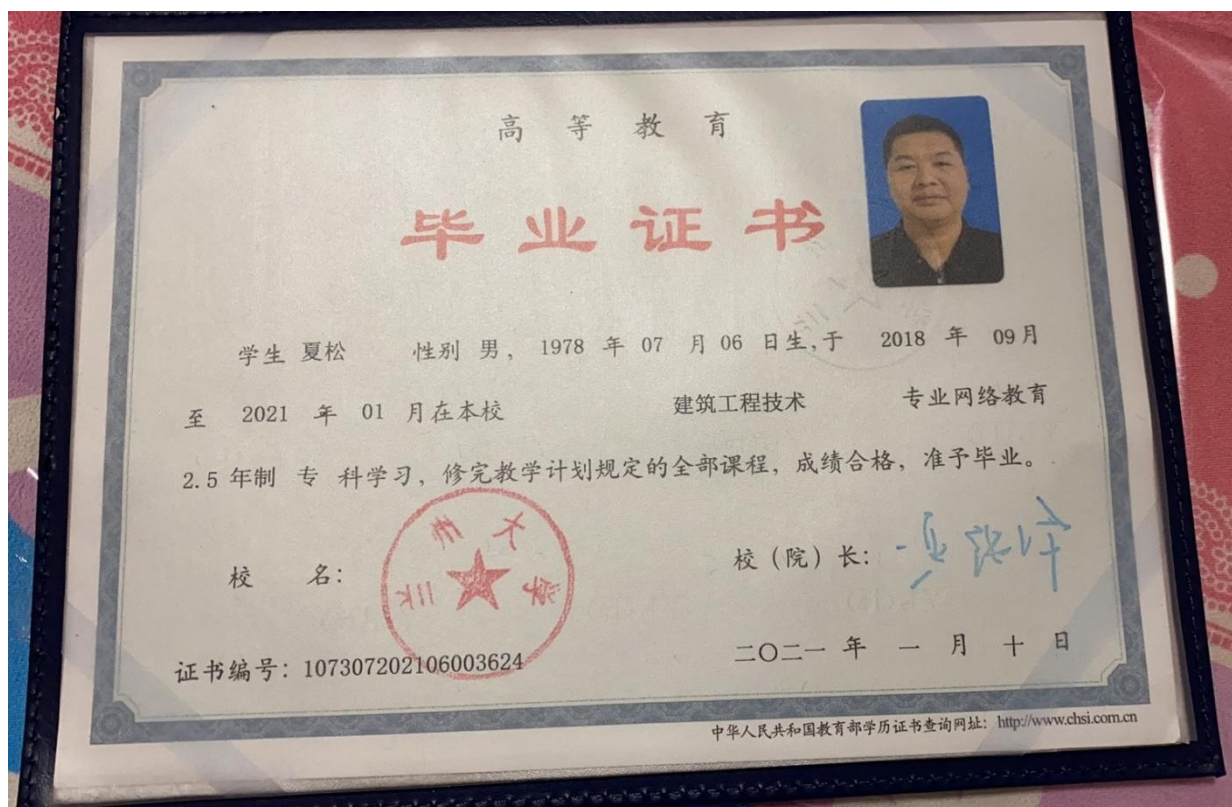 高等教育
毕业证书
学生 夏松 性别 男, 1978 年 07 月 06 日生,于 2018 年 09月
至 2021 年 01 月在本校 建筑工程技术 专业网络教育
2.5 年制 专 科学习，修完教学计划规定的全部课程，成绩合格，准予毕业。
校 名：
大学
校（院）长：
证书编号：107307202106003624
二〇二一 年 一 月 十 日
中华人民共和国教育部学历证书查询网址：http://www.chsi.com.cn